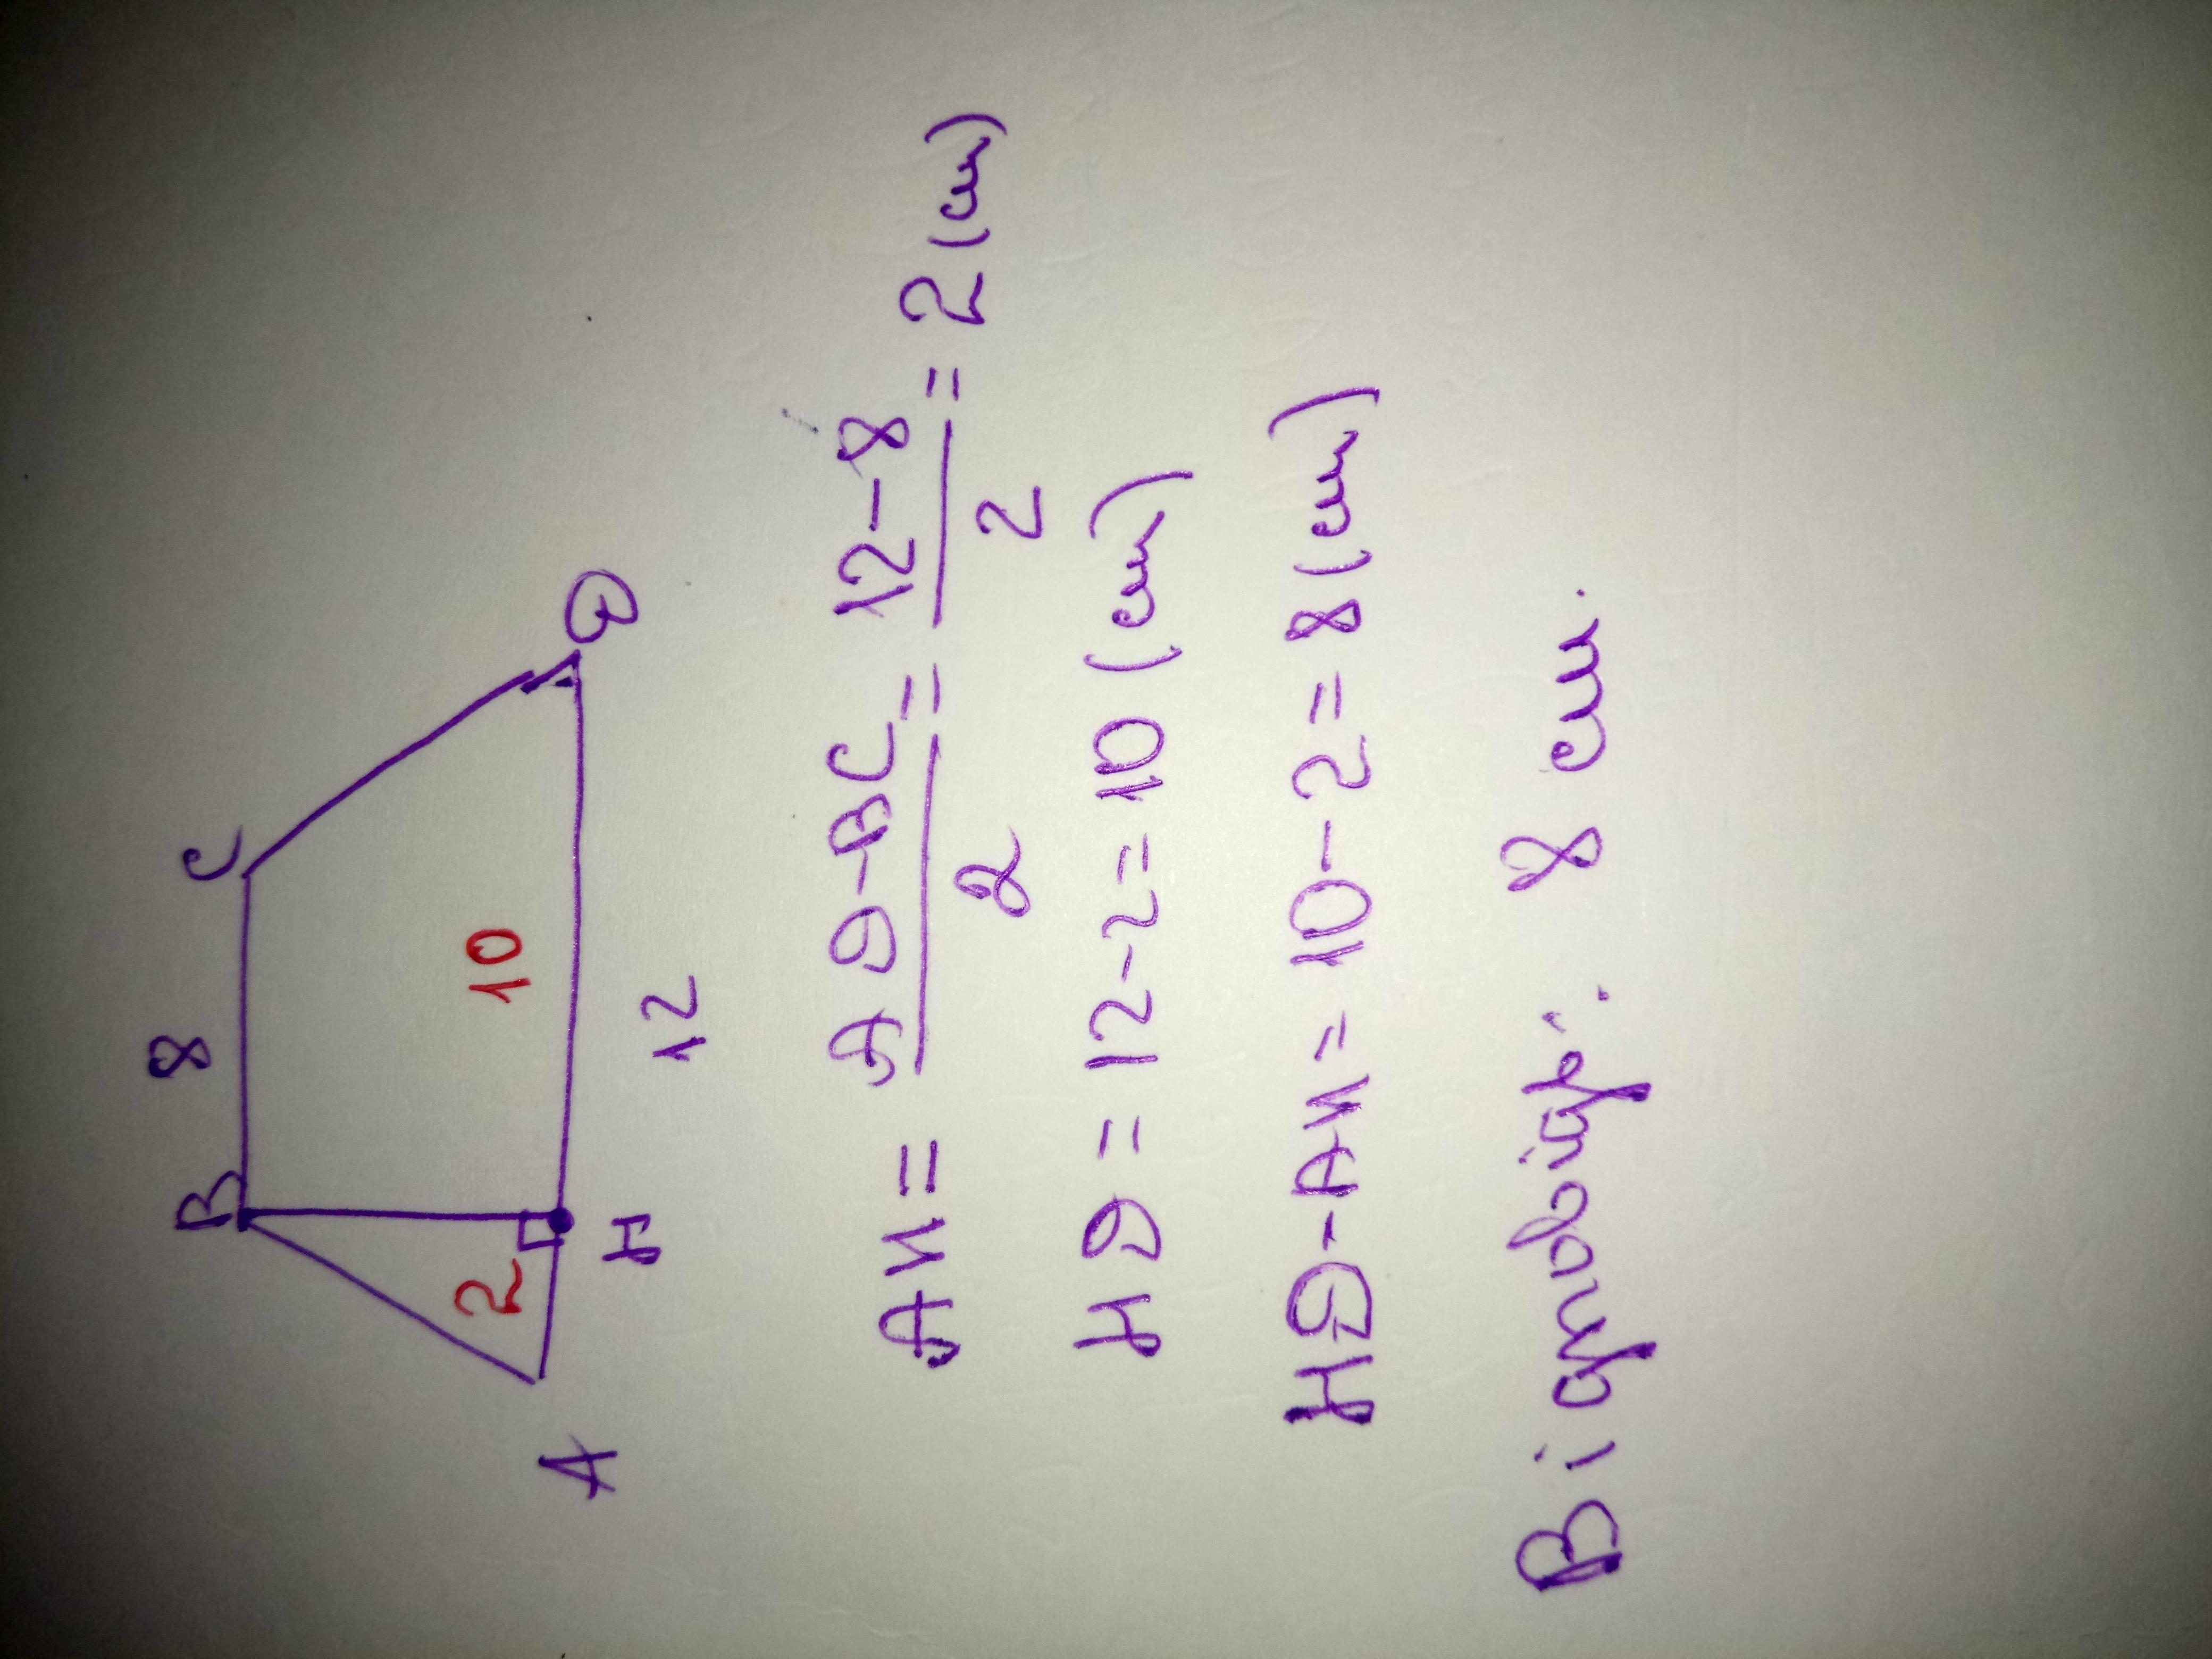 8
B C
2 10
A H D
12
AH = AD-BC/2 = 12-8/2 = 2 (см)
HD = 12-2 = 10 (см)
HD-AH = 10-2 = 8 (см)
Відповідь: 8 см.